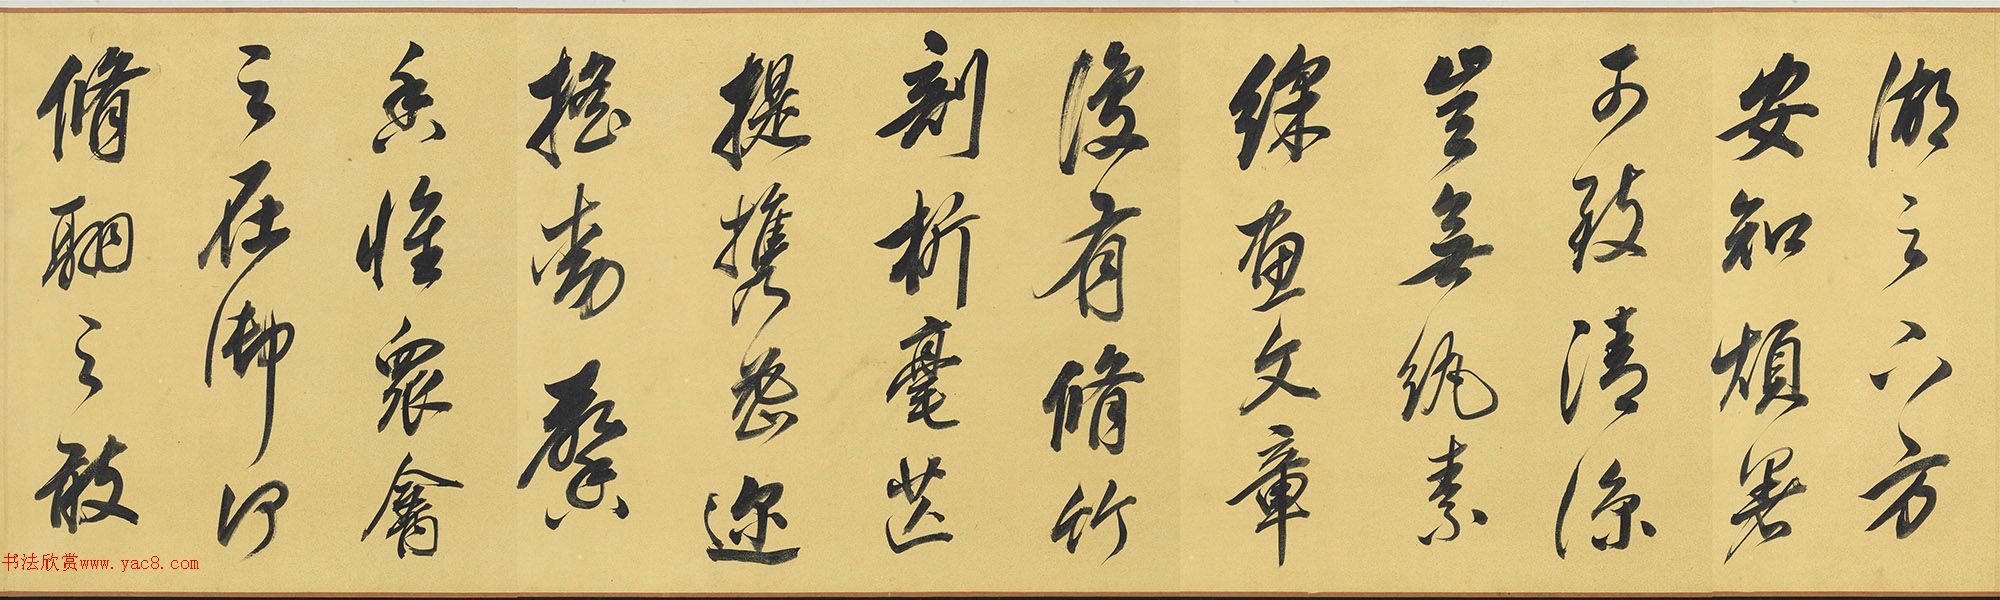 湖之下方
安知煩暑
可致清涼
豈無紈素
綵畫文章
復有脩竹
刻析毫芒
提攜密邇
搖動馨
香惟衆禽
之在御何
脩翮之敢
书法欣赏www.yac8.com